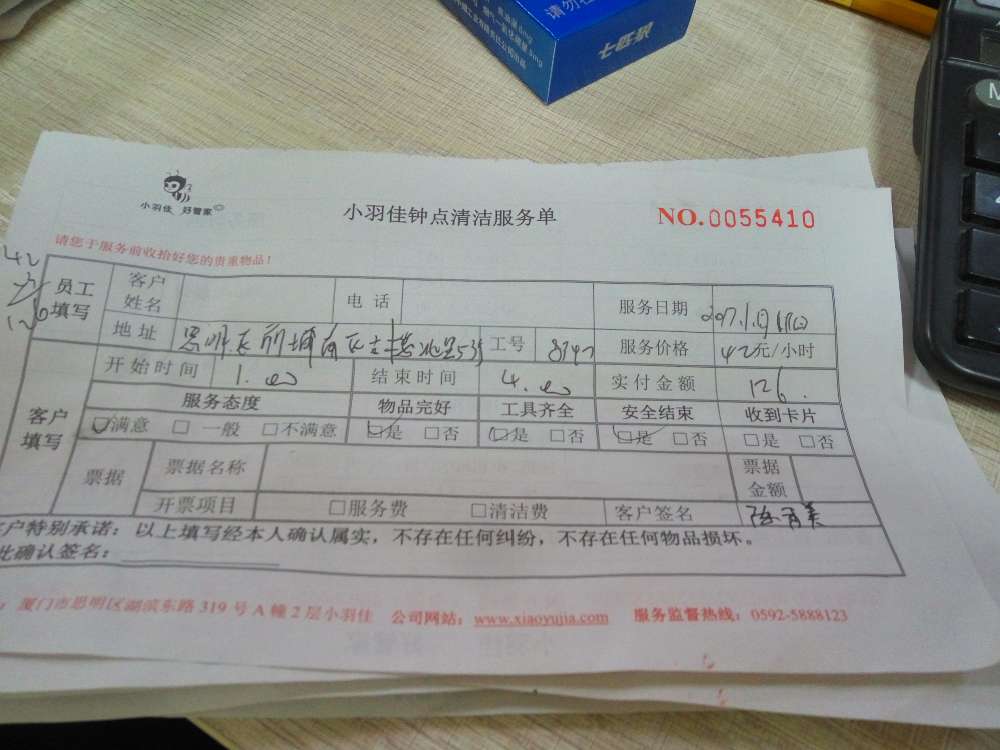 请勿在
七匹狼
小羽佳 好管家
小羽佳钟点清洁服务单
NO.0055410
请您于服务前收拾好您的贵重物品！
42
126
员工填写
客户姓名
电话
服务日期
地址
工号
服务价格 42元/小时
开始时间 1.00
结束时间 4.00
实付金额 126.
客户填写
服务态度
物品完好
工具齐全
安全结束
收到卡片
☑满意 □一般 □不满意
☑是 □否
☑是 □否
☑是 □否
□是 □否
票据
票据名称
票据金额
开票项目
□服务费
□清洁费
客户签名
客户特别承诺：以上填写经本人确认属实，不存在任何纠纷，不存在任何物品损坏。
此确认签名：
厦门市思明区湖滨东路 319 号 A 幢 2 层小羽佳 公司网站：www.xiaoyujia.com 服务监督热线：0592-5888123